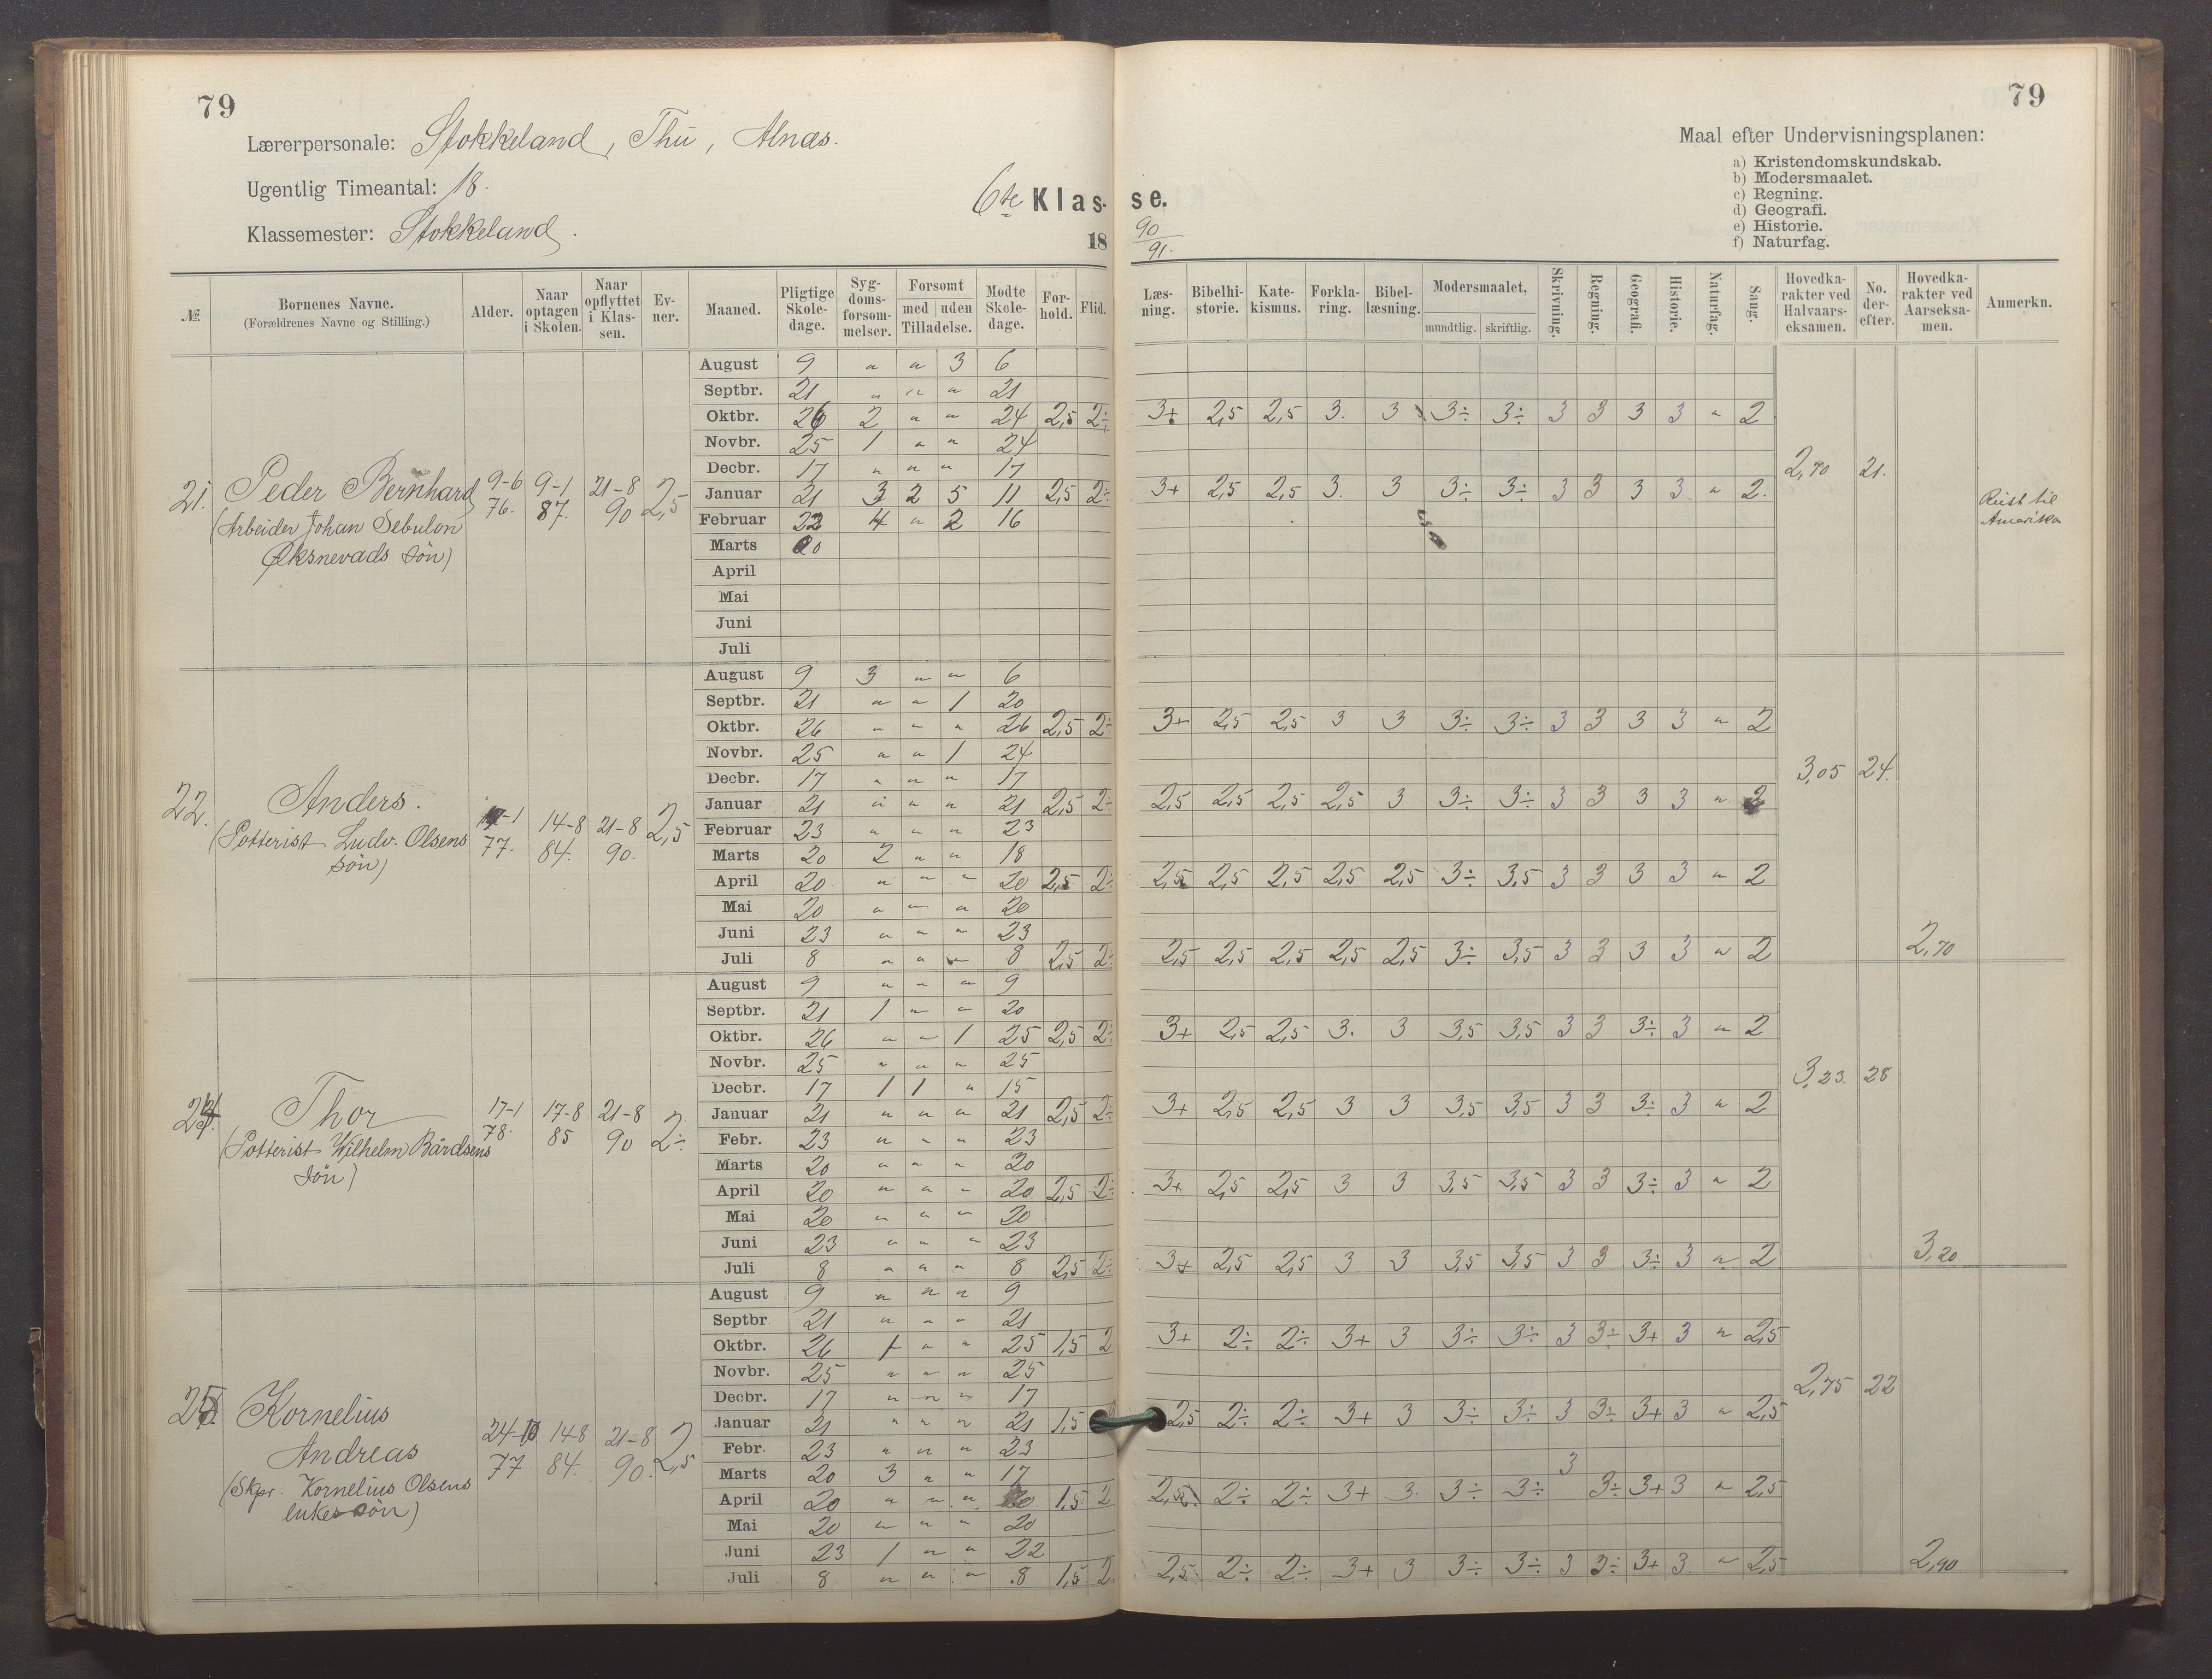 79
Lærerpersonale: Stokkeland, Thu, Alnæs.
Ugentlig Timeantal: 18.
Klassemester: Stokkeland.
6te Klas-
18
№ Børnenes Navne. (Forældrenes Navne og Stilling.) Alder. Naar optagen i Skolen. Naar opflyttet i Klassen. Evner. Maaned. Pligtige Skoledage. Sygdomsforsømmelser. Forsømt med | uden Tilladelse. Mødte Skoledage. Forhold. Flid.
21. Peder Bernhard 9-6 76. 9-1 87. 21-8 90 2,5
(Arbeider Johan Sebulon
Øksnevads søn)
August 9 " " 3 6
Septbr. 21 " " " 21
Oktbr. 26 2 " " 24 2,5 2÷
Novbr. 25 1 " " 24
Decbr. 17 " " " 17
Januar 21 3 2 5 11 2,5 2÷
Februar 22 4 " 2 16
Marts 20
April
Mai
Juni
Juli
22. Anders. 77. 14-8 84. 21-8 90. 2,5
(Potterist Ludv. Olsens
søn)
August 9 3 " " 6
Septbr. 21 " " 1 20
Oktbr. 26 " " " 26 2,5 2÷
Novbr. 25 " " 1 24
Decbr. 17 " " " 17
Januar 21 " " " 21 2,5 2÷
Februar 23 " " " 23
Marts 20 2 " " 18
April 20 " " " 20 2,5 2÷
Mai 20 " " " 20
Juni 23 " " " 23
Juli 8 " " " 8 2,5 2÷
Thor 17-1 78. 17-8 85 21-8 90 2÷
(Potterist Wilhelm Bårdsens
søn)
August 9 " " " 9
Septbr. 21 1 " " 20
Oktbr. 26 " " 1 25 2,5 2÷
Novbr. 25 " " " 25
Decbr. 17 1 1 " 15
Januar 21 " " " 21 2,5 2÷
Febr. 23 " " " 23
Marts 20 " " " 20
April 20 " " " 20 2,5 2÷
Mai 20 " " " 20
Juni 23 " " " 23
Juli 8 " " " 8 2,5 2÷
Kornelius
Andreas 24-10 77 14-8 84. 21-8 90. 2,5
(Skpr. Kornelius Olsens
enkes søn)
August 9 " " " 9
Septbr 21 " " " 21
Oktbr. 26 1 " " 25 1,5 2
Novbr. 25 " " " 25
Decbr. 17 " " " 17
Januar 21 " " " 21 1,5
Febr. 23 " " " 23
Marts 20 3 " " 17
April 20 " " " 20 1,5 2
Mai 20 " " " 20
Juni 23 1 " " 22
Juli 8 " " " 8 1,5 2
79
Maal efter Undervisningsplanen:
a) Kristendomskundskab.
b) Modersmaalet.
c) Regning.
d) Geografi.
e) Historie.
f) Naturfag.
se.
90
91.
Læsning. Bibelhistorie. Katekismus. Forklaring. Bibellæsning. Modersmaalet, mundtlig. skriftlig. Skrivning. Regning. Geografi. Historie. Naturfag. Sang. Hovedkarakter ved Halvaarseksamen. No. derefter. Hovedkarakter ved Aarseksamen. Anmerkn.
3+ 2,5 2,5 3. 3 3÷ 3÷ 3 3 3 3 " 2
2,70 21.
3+ 2,5 2,5 3. 3 3÷ 3÷ 3 3 3 3 " 2.
Reist til
Amerika
3+ 2,5 2,5 3 3 3÷ 3÷ 3 3 3 3 " 2
3,05 24.
2,5 2,5 2,5 2,5 3 3÷ 3÷ 3 3 3 3 " 2
2,5 2,5 2,5 2,5 2,5 3÷ 3,5 3 3 3 3 " 2
2,5 2,5 2,5 2,5 2,5 3÷ 3,5 3 3 3 3 " 2 2,70
3+ 2,5 2,5 3. 3 3,5 3,5 3 3 3÷ 3 " 2
3,23. 28
3+ 2,5 2,5 3 3 3,5 3,5 3 3 3÷ 3 " 2
3+ 2,5 2,5 3 3 3,5 3,5 3 3 3÷ 3 " 2
3+ 2,5 2,5 3 3 3,5 3,5 3 3 3÷ 3 " 2 3,20
3+ 2÷ 2÷ 3+ 3 3÷ 3÷ 3 3÷ 3+ 3 " 2,5
2,75 22
2,5 2÷ 2÷ 3+ 3 3÷ 3÷ 3 3÷ 3+ 3 " 2,5
2,5 2÷ 2÷ 3+ 3. 3÷ 3÷ 3 3÷ 3+ 3 " 2,5
2,5 2÷ 2÷ 3+ 3 3÷ 3÷ 3 3÷ 3+ 3 " 2,5 2,90